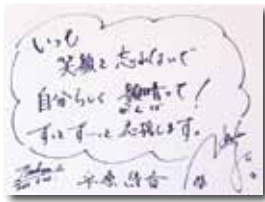 いつも
笑顔を忘れないで
自分らしく頑張って！
ずっとずーっと応援します。
平原綾香